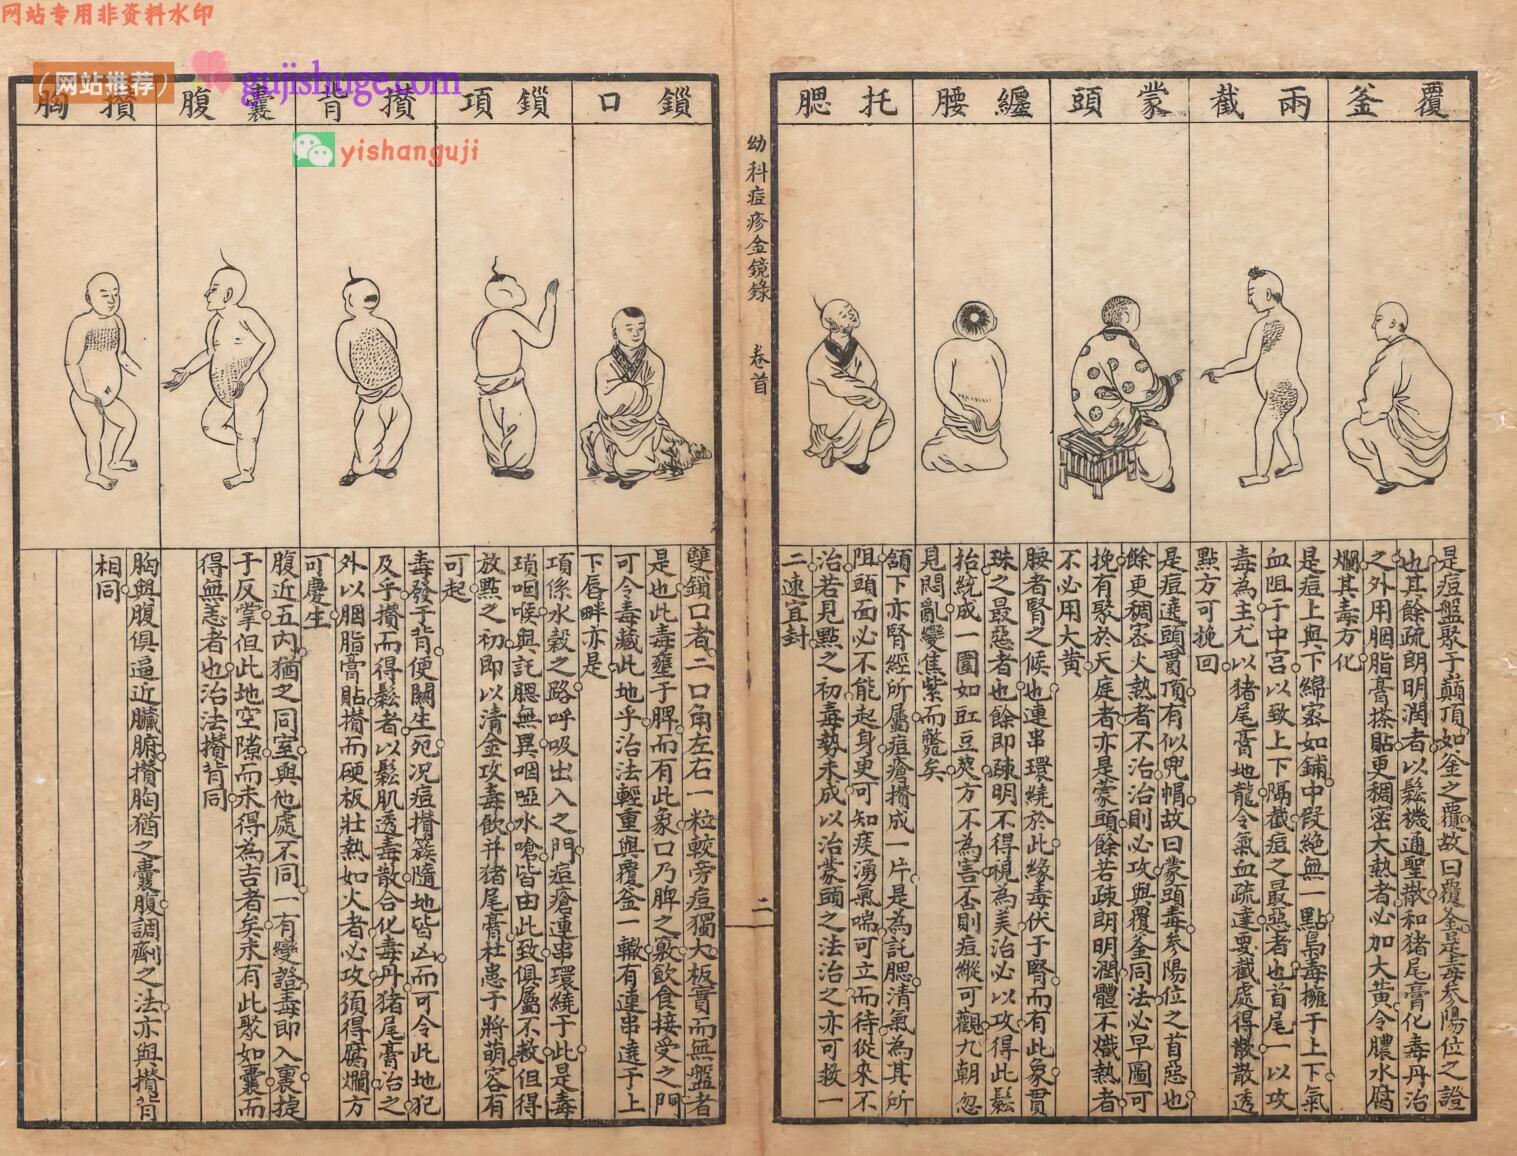 网站专用非资料水印
(网站推荐)
gujishuge.com
yishanguji
覆釜
兩截
蒙頭
纏腰
托腮
是痘盤聚于巔頂如釜之覆故曰覆釜是毒參陽位之證
也其餘疏朗明潤者以鬆機通聖散和猪尾膏化毒丹治
之外用胭脂膏搽貼更稠密大熱者必加大黃令膿水腐
爛其毒方化
是痘上與下綿密如鋪中段絶無一點爲毒擁于上下氣
血阻于中宫以致上下隔截痘之最惡者也首尾一以攻
毒為主尤以猪尾膏地龍令氣血疏達要截處得散散透
點方可挽回
是痘遶頭貫頂有似兜帽故曰蒙頭毒參陽位之首惡也
餘更稠密火熱者不治治則必攻與覆釜同法必早圖可
挽有聚於天庭者亦是蒙頭餘若疎朗明潤體不熾熱者
不必用大黄
腰者腎之候也連串環繞於此緣毒伏于腎而有此象貫
珠之最惡者也餘即疎明不得視為美治必以攻得此鬆
抬統成一圍如豇豆莢方不為害否則痘縱可觀九朝忽
見悶亂變焦紫而斃矣
頷下亦腎經所屬痘瘡攢成一片是為託腮清氣為其所
阻頭面必不能起身更可知痰湧氣喘可立而待從來不
治若見點之初毒勢未成以治蒙頭之法治之亦可救一
二速宜封
幼科痘疹金鏡錄
卷首
二
鎖口
鎖項
攢背
囊腹
攢胸
雙鎖口者二口角左右一粒較旁痘獨大板實而無盤者
是也此毒壅于脾而有此象口乃脾之竅飲食接受之門
可令毒藏此地乎治法輕重與覆釜一轍有連串遶于上
下唇畔亦是
項係水穀之路呼吸出入之門痘瘡連串環繞于此是毒
瑣咽喉與託腮無異咽啞水嗆皆由此致俱屬不救但得
放點之初即以清金攻毒飲并猪尾膏杜患于將萌容有
可起
毒發于背便關生死况痘攢簇隨地皆凶而可令此地犯
及乎攢而得鬆者以鬆肌透毒散合化毒丹猪尾膏治之
外以胭脂膏貼攢而硬板壯熱如火者必攻須得腐爛方
可慶生
腹近五内猶之同室與他處不同一有變證毒即入裏捷
于反掌但此地空隙而未得為吉者矣未有此聚如囊而
得無恙者也治法攢背同
胸與腹俱逼近臟腑攢胸猶之囊腹調劑之法亦與攢背
相同